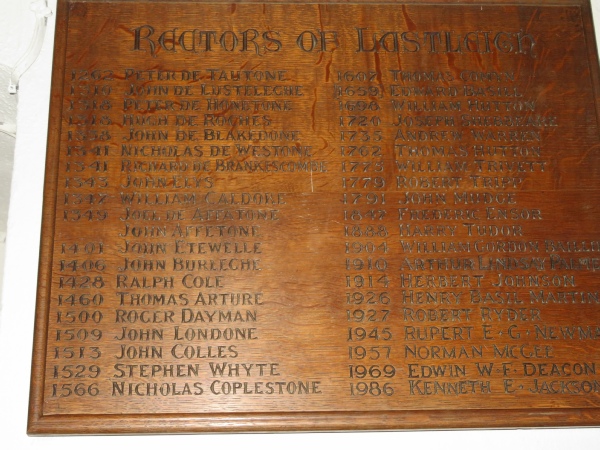 RECTORS OF LUSTLEIGH
1263 PETER DE TAUTONE
JOHN DE LUSTELECHE
PETER DE
HUGH DE ROCHES
JOHN DE BLAKEDONE
1341 NICHOLAS DE WESTONE
1341 RICHARD DE BRANKESCOMBE
1343 JOHN
WILLIAM CALDORE
1349 JOEL DE AFFETONE
JOHN AFFETONE
1401 JOHN ETEWELLE
1406 JOHN BURLECHE
1428 RALPH COLE
1460 THOMAS ARTURE
1500 ROGER DAYMAN
1509 JOHN LONDONE
1513 JOHN COLLES
1529 STEPHEN WHYTE
1566 NICHOLAS COPLESTONE
THOMAS
1659 EDWARD
WILLIAM
1720 JOSEPH
1735 ANDREW
1762 THOMAS HUTTON
WILLIAM
1779 ROBERT TRIPP
1791 JOHN MUDGE
FREDERIC ENSOR
1888 HARRY TUDOR
1904 WILLIAM GORDON
1910 ARTHUR LINDSAY
1914 HERBERT JOHNSON
1926 HENRY BASIL
1927 ROBERT RYDER
1945 RUPERT E. C. NEWMA
1957 NORMAN MCGEE
1969 EDWIN W. F. DEACON
1986 KENNETH E. JACKSON